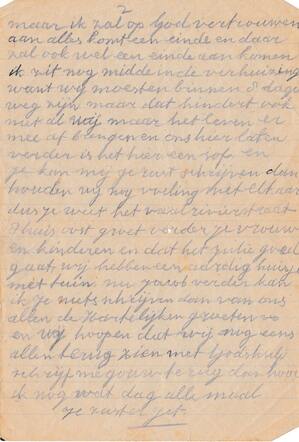 2
maar ik zal op God vertrouwen
aan alles komt een einde en daar
zal ook wel een einde aan komen
ik zit nog midde in de verhuizing
want wij moesten binnen 8 dage
weg zijn maar dat hindert ook
niet als wij maar het leven er
mee af brengen en ons hier laten
verder is het hier een sof en
je kan mij je rust schrijven dan
houden wij nog voeling met elkaar
dus je weet het vaalrivierstraat
7 huis oost groet verder je vrouw
en kinderen en dat het jullie goed
gaat wij hebben een aardig huis
met tuin nu Jacob verder kan
ik je niets schrijven dan van ons
allen de Hartelijken groeten
en wij hoopen dat wij nog eens
allen terug zien met Gods hulp
schrijf me gouw terug dan hoor
ik nog wat dag alle maal
je zuster Jet